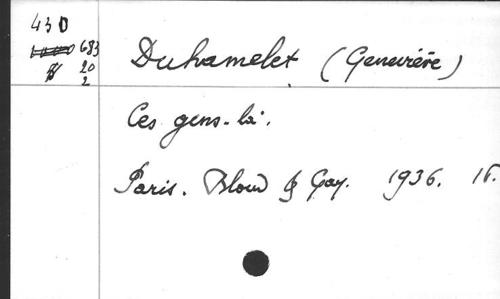 430
683
20
2
Duhamelet (Geneviève)
Ces gens-là.
Paris. Bloud & Gay. 1936. 16.